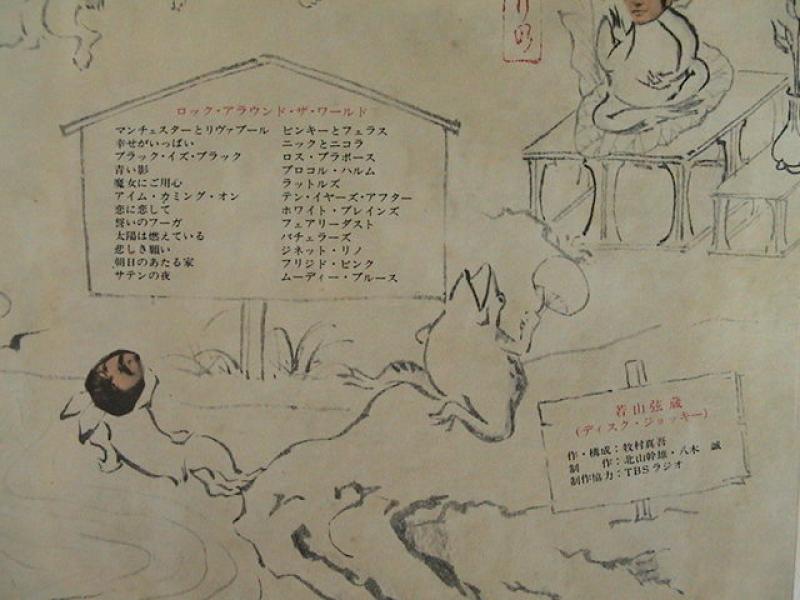 ロック・アラウンド・ザ・ワールド
マンチェスターとリヴァプール ピンキーとフェラス
幸せがいっぱい ニックとニコラ
ブラック・イズ・ブラック ロス・ブラボース
青い影 プロコル・ハルム
魔女にご用心 ラットルズ
アイム・カミング・オン テン・イヤーズ・アフター
恋に恋して ホワイト・プレインズ
誓いのフーガ フェアリーダスト
太陽は燃えている バチェラーズ
悲しき願い ジネット・リノ
朝日のあたる家 フリジド・ピンク
サテンの夜 ムーディー・ブルース
若山弦蔵
(ディスク・ジョッキー)
作・構成:牧村真吾
制 作:北山幹雄・八木 誠
制作協力:TBSラジオ